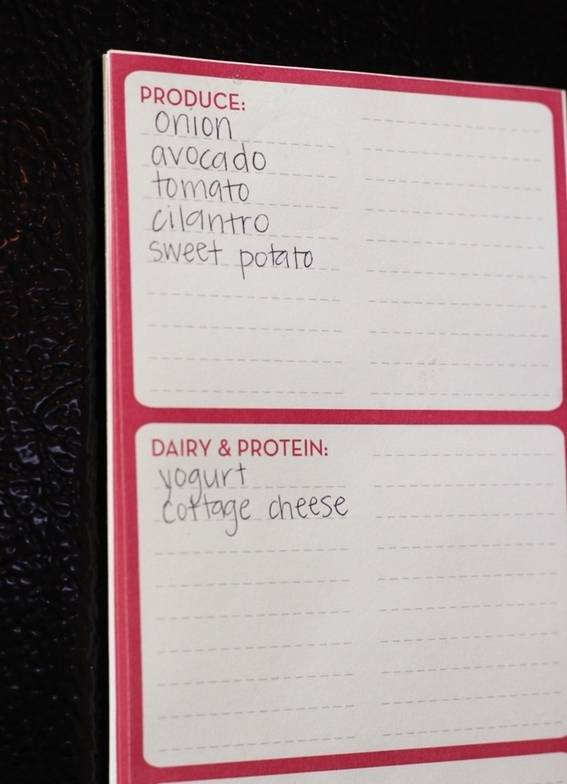 PRODUCE:
onion
avocado
tomato
cilantro
sweet potato
DAIRY & PROTEIN:
yogurt
cottage cheese